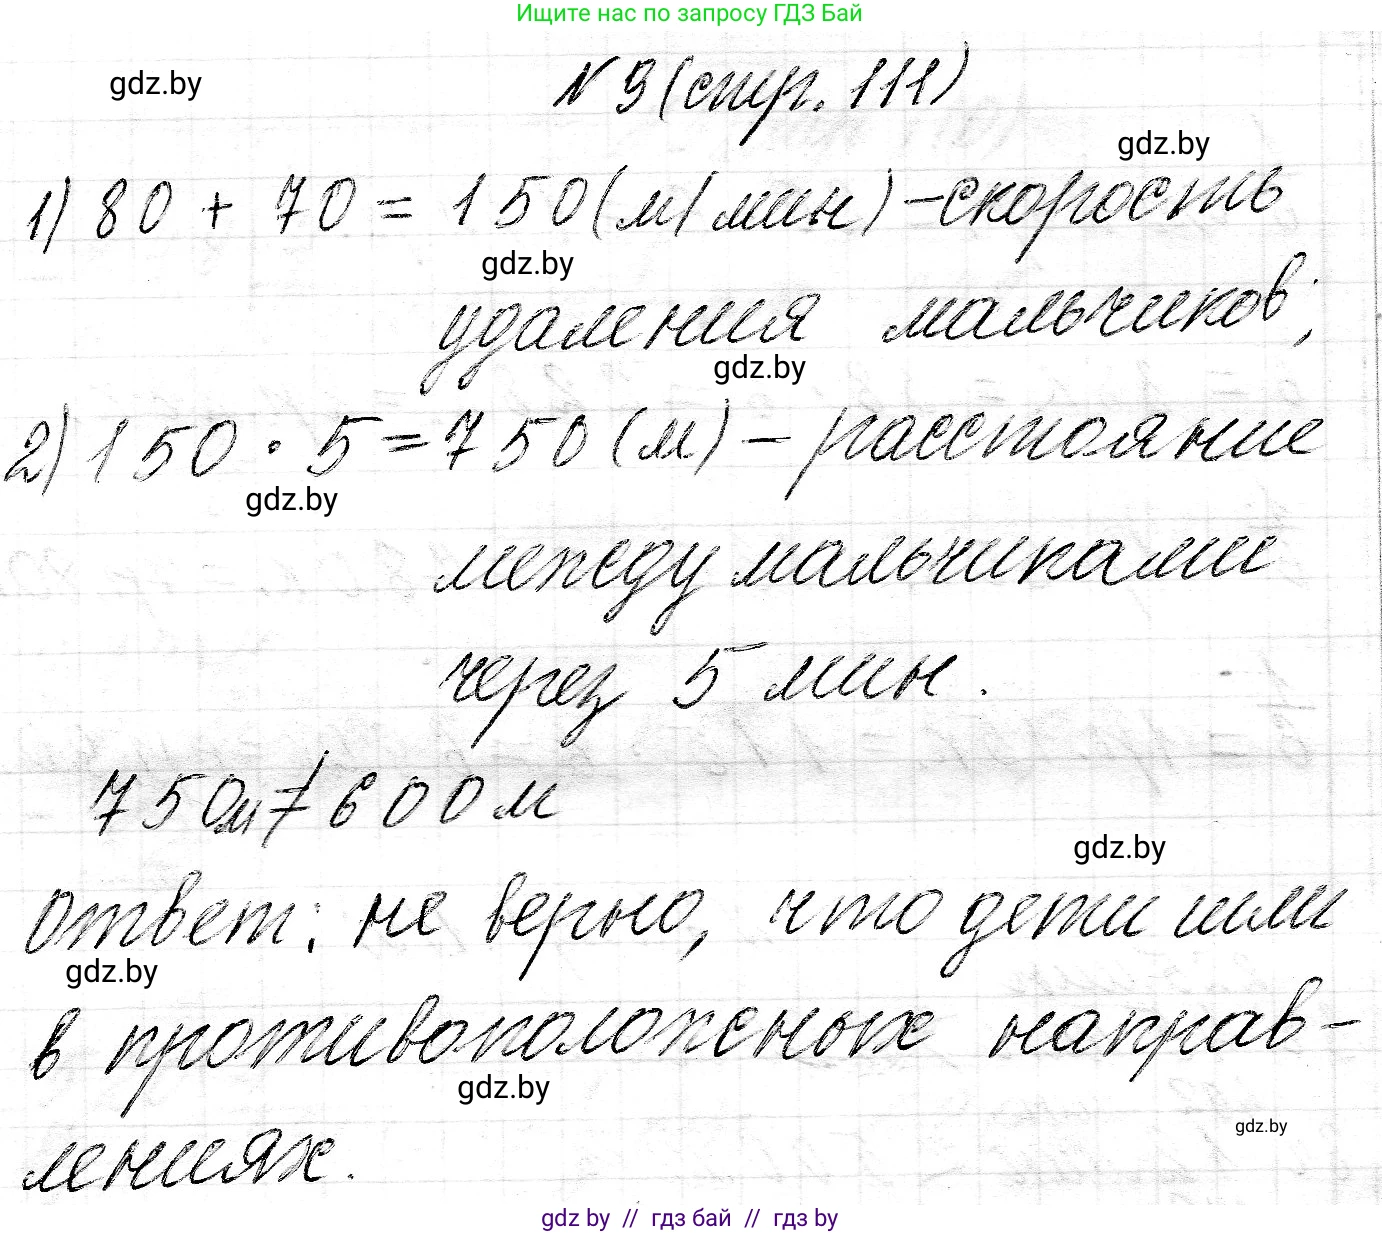 Ищите нас по запросу ГДЗ Бай
gdz.by
N 9 (стр. 111)
gdz.by
1) 80 + 70 = 150 (м/мин) - скорость
gdz.by
удаления мальчиков;
gdz.by
2) 150 · 5 = 750 (м) - расстояние
gdz.by
между мальчиками
через 5 мин.
750м ≠ 600м
gdz.by
Ответ: не верно, что дети шли
gdz.by
в противоположных направ-
gdz.by
gdz.by
лениях.
gdz by // гдз бай // гдз by